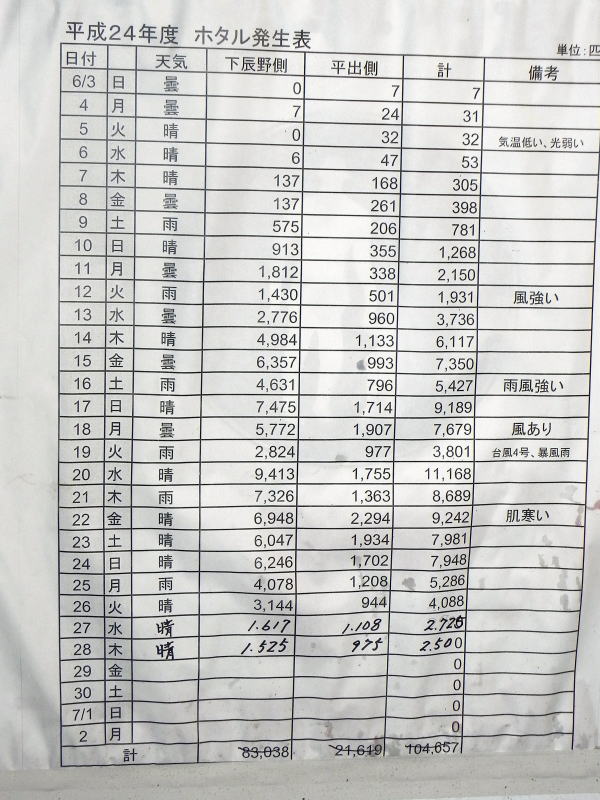 平成24年度 ホタル発生表
単位:匹
日付 天気 下辰野側 平出側 計 備考
6/3 日 曇 0 7 7
4 月 曇 7 24 31
5 火 晴 0 32 32 気温低い、光弱い
6 水 晴 6 47 53
7 木 晴 137 168 305
8 金 曇 137 261 398
9 土 雨 575 206 781
10 日 晴 913 355 1,268
11 月 曇 1,812 338 2,150
12 火 雨 1,430 501 1,931 風強い
13 水 曇 2,776 960 3,736
14 木 晴 4,984 1,133 6,117
15 金 曇 6,357 993 7,350
16 土 雨 4,631 796 5,427 雨風強い
17 日 晴 7,475 1,714 9,189
18 月 曇 5,772 1,907 7,679 風あり
19 火 雨 2,824 977 3,801 台風4号、暴風雨
20 水 晴 9,413 1,755 11,168
21 木 雨 7,326 1,363 8,689
22 金 晴 6,948 2,294 9,242 肌寒い
23 土 晴 6,047 1,934 7,981
24 日 晴 6,246 1,702 7,948
25 月 雨 4,078 1,208 5,286
26 火 晴 3,144 944 4,088
27 水 晴 1.617 1.108 2.725
28 木 晴 1.525 975 2.500
29 金 0
30 土 0
7/1 日 0
2 月 0
計 83,038 21,619 104,657